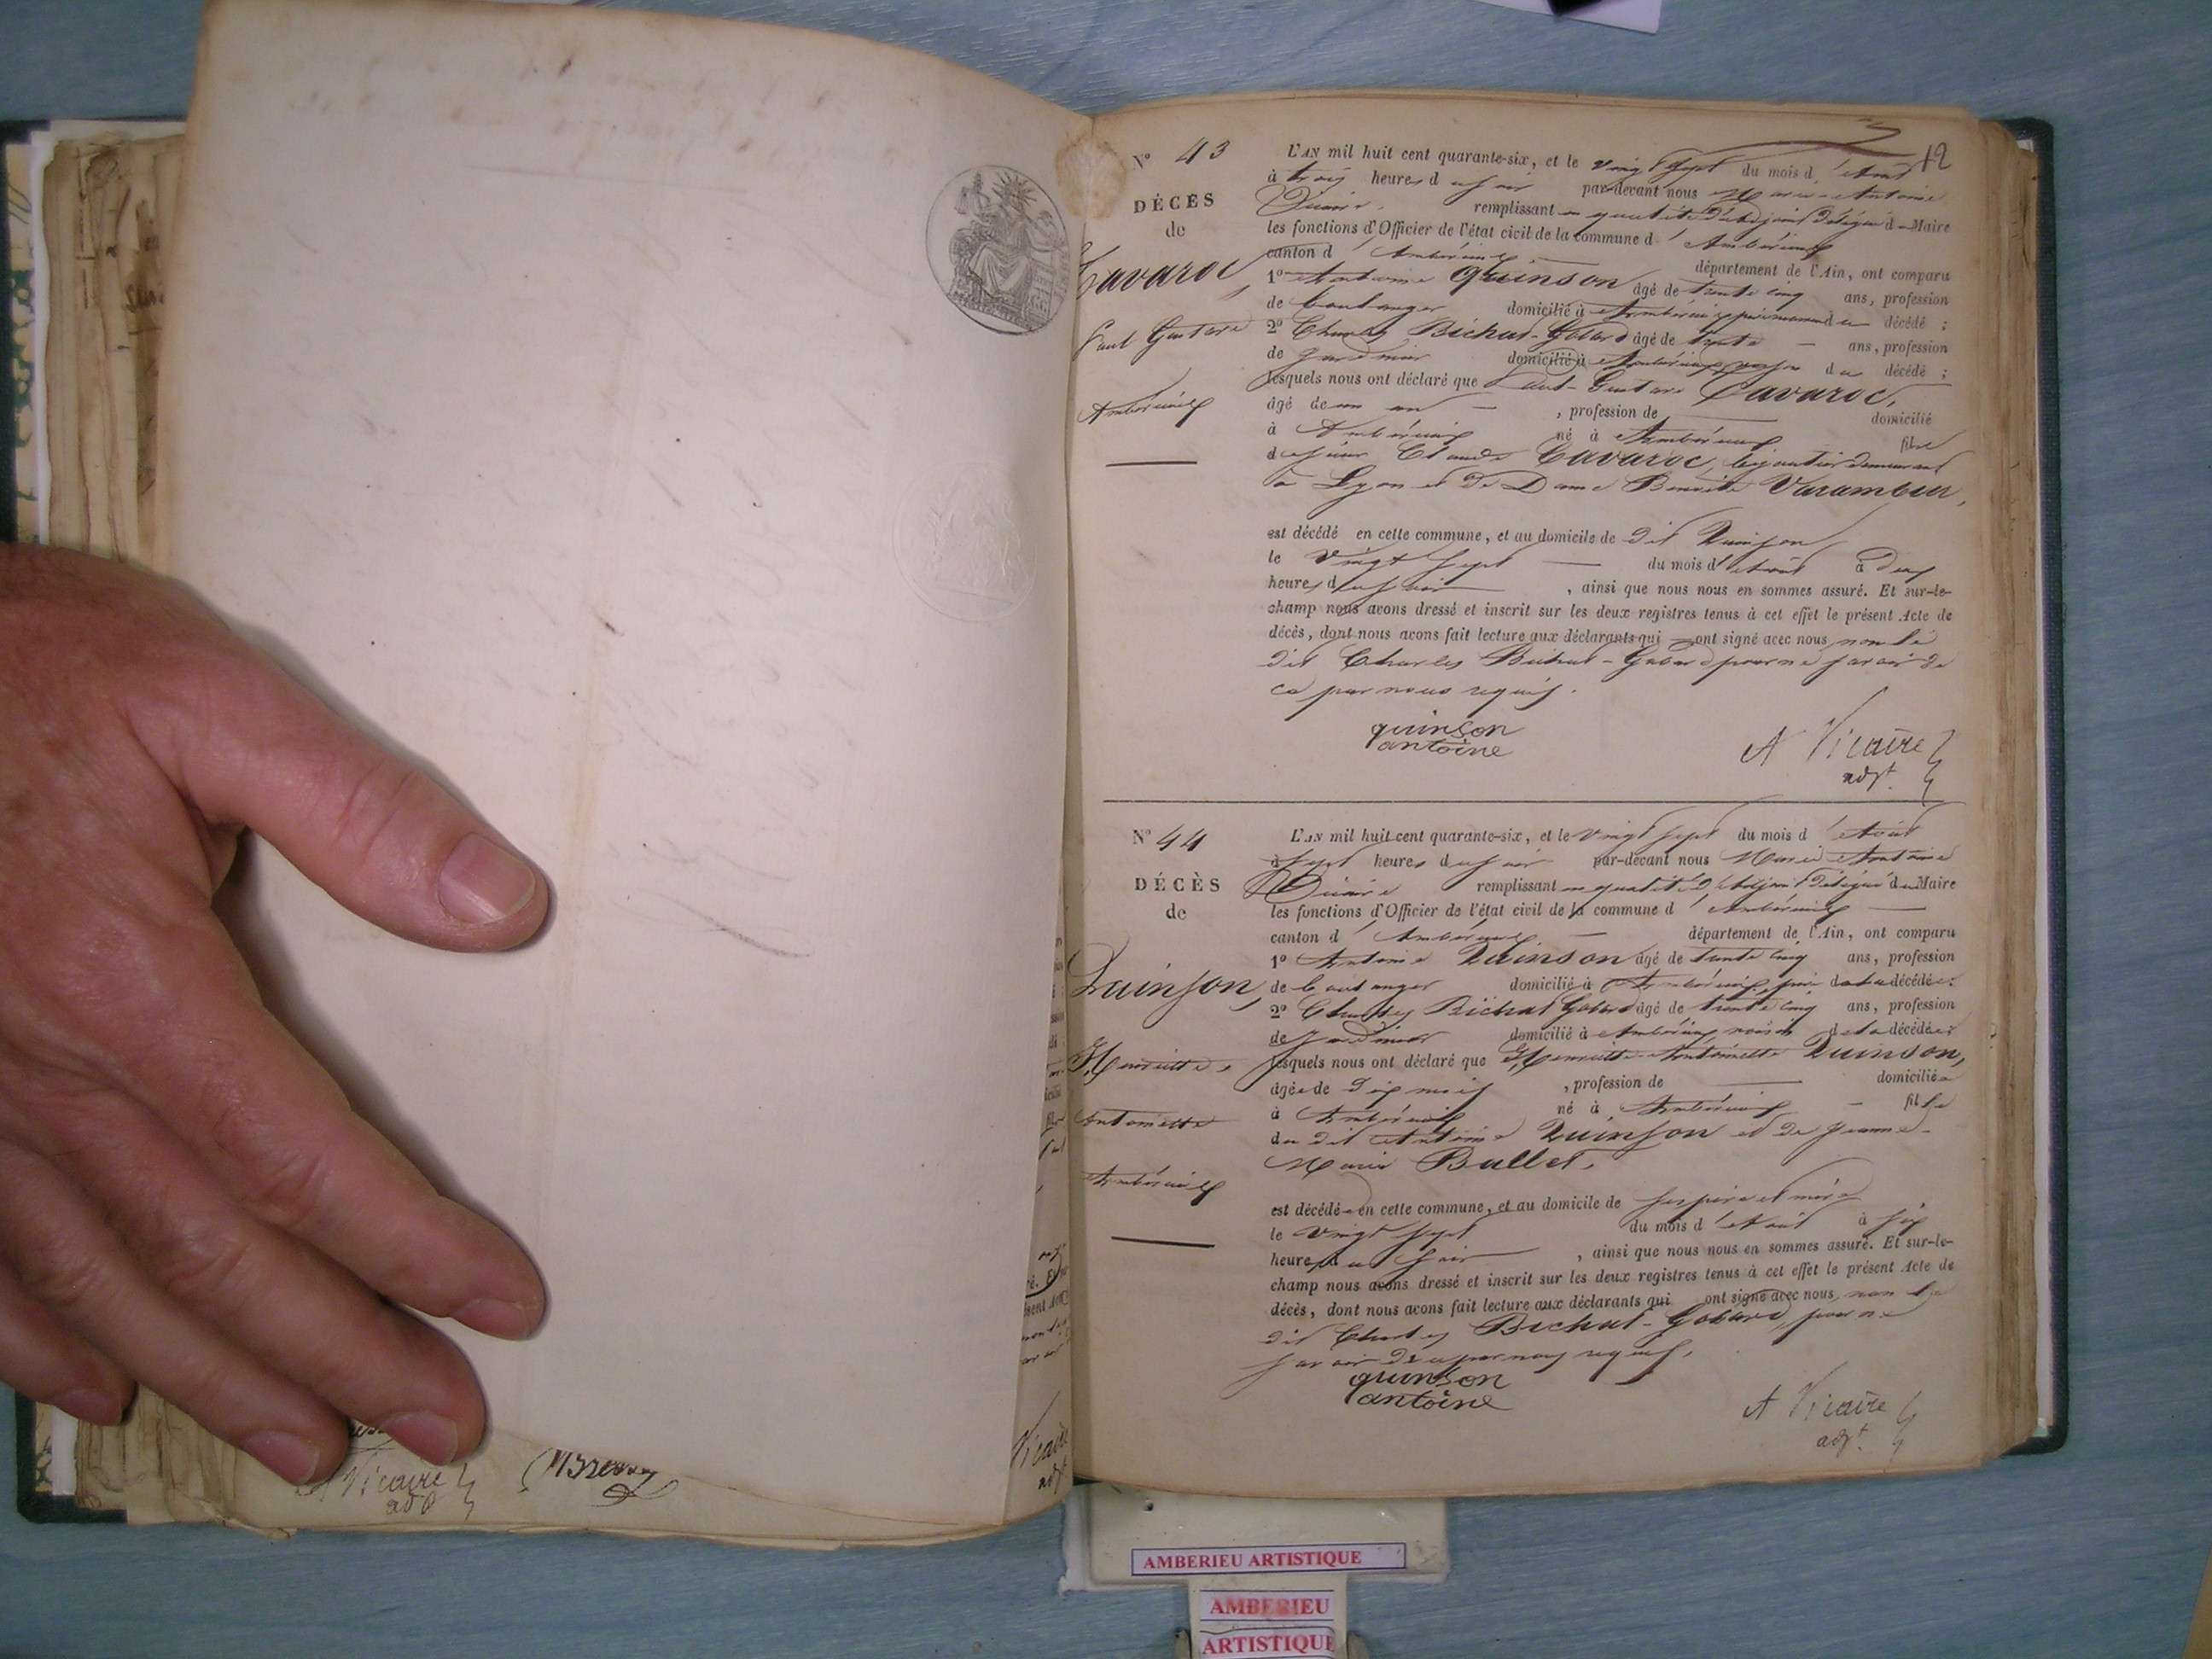 12
N° 43
DÉCÈS
de
Cavaroc
Paul Gustave
Ambérieux
L'AN mil huit cent quarante-six, et le vingt sept du mois d'Août
à trois heures du soir par-devant nous Marie-Antoine
Vicaire remplissant en qualité d'adjoint délégué du Maire
les fonctions d'Officier de l'état civil de la commune d'Ambérieux
canton d'Ambérieux département de l'Ain, ont comparu
1° Antoine Quinson âgé de trente cinq ans, profession
de boulanger domicilié à Ambérieux du décédé ;
2° Charles Bichat-Gobard âgé de trente ans, profession
de jardinier domicilié à Ambérieux, voisin du décédé ;
lesquels nous ont déclaré que Paul-Gustave Cavaroc,
âgé de un an , profession de domicilié
à Ambérieux né à Ambérieux fils
de sieur Claude Cavaroc, bijoutier demeurant
à Lyon et de Dame Benoite Varambon,
est décédé en cette commune, et au domicile de dit Quinson
le vingt sept du mois d'Août à deux
heures du soir , ainsi que nous nous en sommes assuré. Et sur-le-
champ nous avons dressé et inscrit sur les deux registres tenus à cet effet le présent Acte de
décès, dont nous avons fait lecture aux déclarants qui ont signé avec nous, non le
dit Charles Bichat-Gobard pour ne savoir de
ce par nous requis.
quinson
antoine
A Vicaire
adjt.
N° 44
DÉCÈS
de
Quinson,
Henriette
Antoinette
Ambérieux
L'AN mil huit cent quarante-six, et le vingt sept du mois d'Août
à sept heures du soir par-devant nous Marie Antoine
Vicaire remplissant en qualité d'adjoint délégué du Maire
les fonctions d'Officier de l'état civil de la commune d'Ambérieux
canton d'Ambérieux département de l'Ain, ont comparu
1° Antoine Quinson âgé de trente cinq ans, profession
de boulanger domicilié à Ambérieux, père de la décédée ;
2° Charles Bichat Gobard âgé de trente cinq ans, profession
de jardinier domicilié à Ambérieux, voisin de la décédée ;
lesquels nous ont déclaré que Henriette-Antoinette Quinson,
âgée de dix mois , profession de domiciliée
à Ambérieux né à Ambérieux fille
du dit Antoine Quinson et de Jeanne-
Marie Bullet.
est décédée en cette commune, et au domicile de ses père et mère
le vingt sept du mois d'Août à six
heures du soir , ainsi que nous nous en sommes assuré. Et sur-le-
champ nous avons dressé et inscrit sur les deux registres tenus à cet effet le présent Acte de
décès, dont nous avons fait lecture aux déclarants qui ont signé avec nous, non le
dit Charles Bichat-Gobard, pour ne
savoir de ce par nous requis.
quinson
antoine
A Vicaire
adjt.
A Vicaire
Vicaire
AMBERIEU ARTISTIQUE
AMBERIEU
ARTISTIQUE